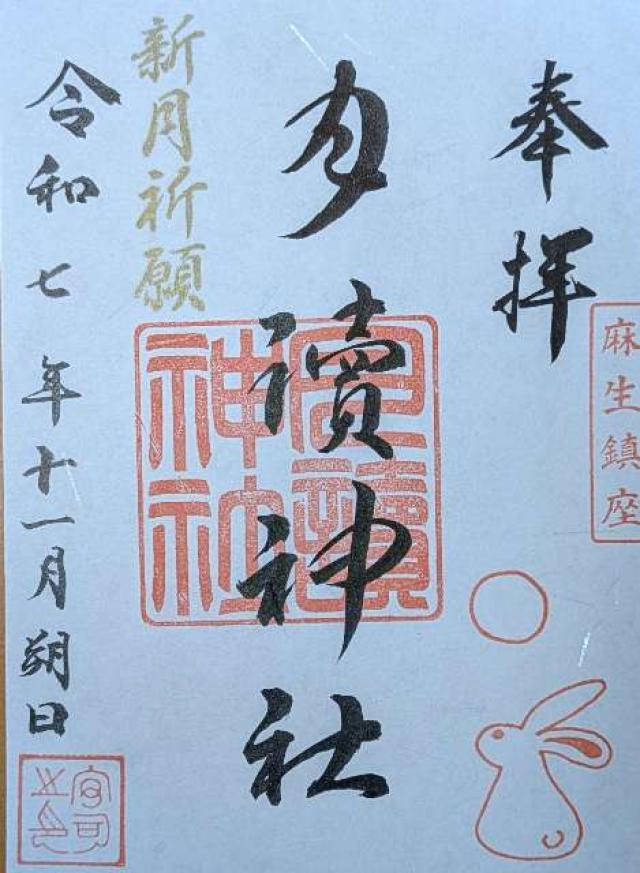 奉拝
麻生鎮座
月讀神社
月讀
神社
新月祈願
令和七年十一月朔日
宮司
之印